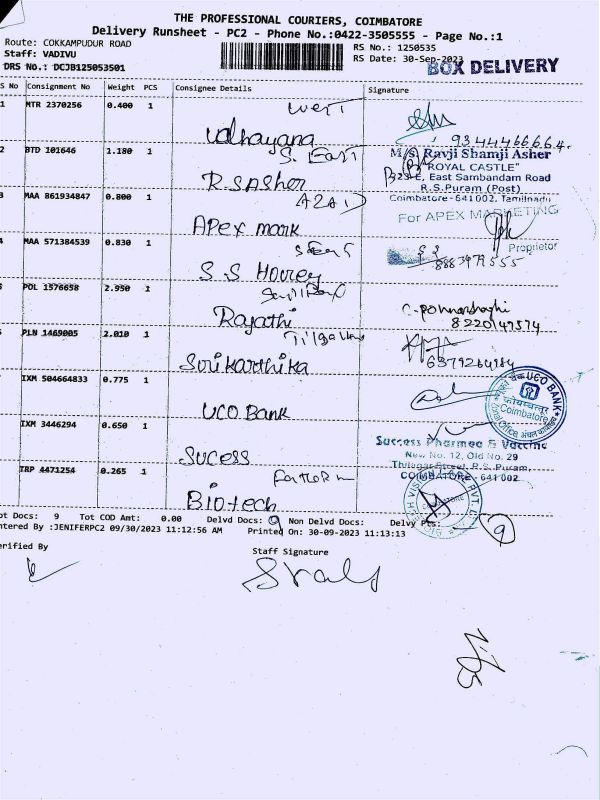 THE PROFESSIONAL COURIERS, COIMBATORE
Delivery Runsheet - PC2 - Phone No.:0422-3505555 - Page No.:1
Route: COKKAMPUDUR ROAD
Staff: VADIVU
DRS No.: DCJB125053501
RS No.: 1250535
RS Date: 30-Sep-2023
BOX DELIVERY
S No Consignment No Weight PCS Consignee Details Signature
1 MTR 2370256 0.400 1 West
Udhayana
9344466664.
2 BTD 101646 1.180 1 S. East
R.S Asher
M/S. Ravji Shamji Asher
"ROYAL CASTLE"
B 23-E, East Sambandam Road
R.S.Puram (Post)
Coimbatore - 641 002. Tamilnadu
3 MAA 861934847 0.800 1
Apex mark
For APEX MARKETING
Proprietor
4 MAA 571384539 0.830 1 S East
S.S Honey
5 POL 1576658 2.950 1
Rajathi
8220147574
PLN 1469005 2.010 1
Sri karthika
IXM 504664833 0.775 1
UCO Bank
UCO BANK
Coimbatore
IXM 3446294 0.650 1
Sucess
Success Pharmee & Vaccine
New No. 12, Old No. 29
Thilagar Street, R.S. Puram,
COIMBATORE - 641 002
TRP 4471254 0.265 1
Biotech
ot Docs: 9 Tot COD Amt: 0.00 Delvd Docs: 9 Non Delvd Docs: Delvy Pts: 9
ntered By :JENIFERPC2 09/30/2023 11:12:56 AM Printed On: 30-09-2023 11:13:13
erified By Staff Signature